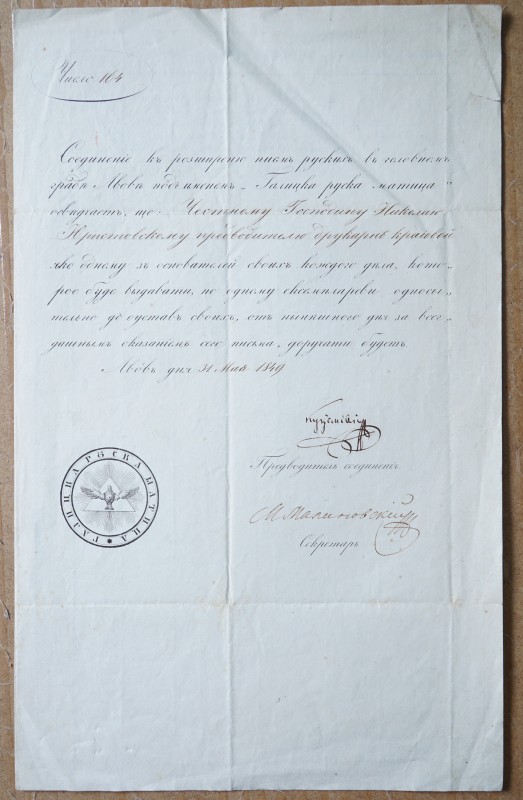 Число 164
Соединеніє къ розширеню писмъ рускихъ въ головномъ
градѣ Львовѣ подъ именемъ „Галицка руска матица“
освѣдчаєтъ, що Честному Господину Николаю
предводителю друкарнѣ краєвой
яко єдному зъ основателей своихъ каждого дѣла, кото„
роє буде выдавати, по одному єксемпларєви односи„
тельно до уставъ своихъ, отъ нынѣшного дня за всег„
дашнымъ оказаніємъ сего письма, доручати будетъ.
Львôвъ дня 31 Мая 1849
Куземскій
Предводитель соединенія
М Малиновскій
Секретарь
ГАЛИЦКА РУСКА МАТИЦА